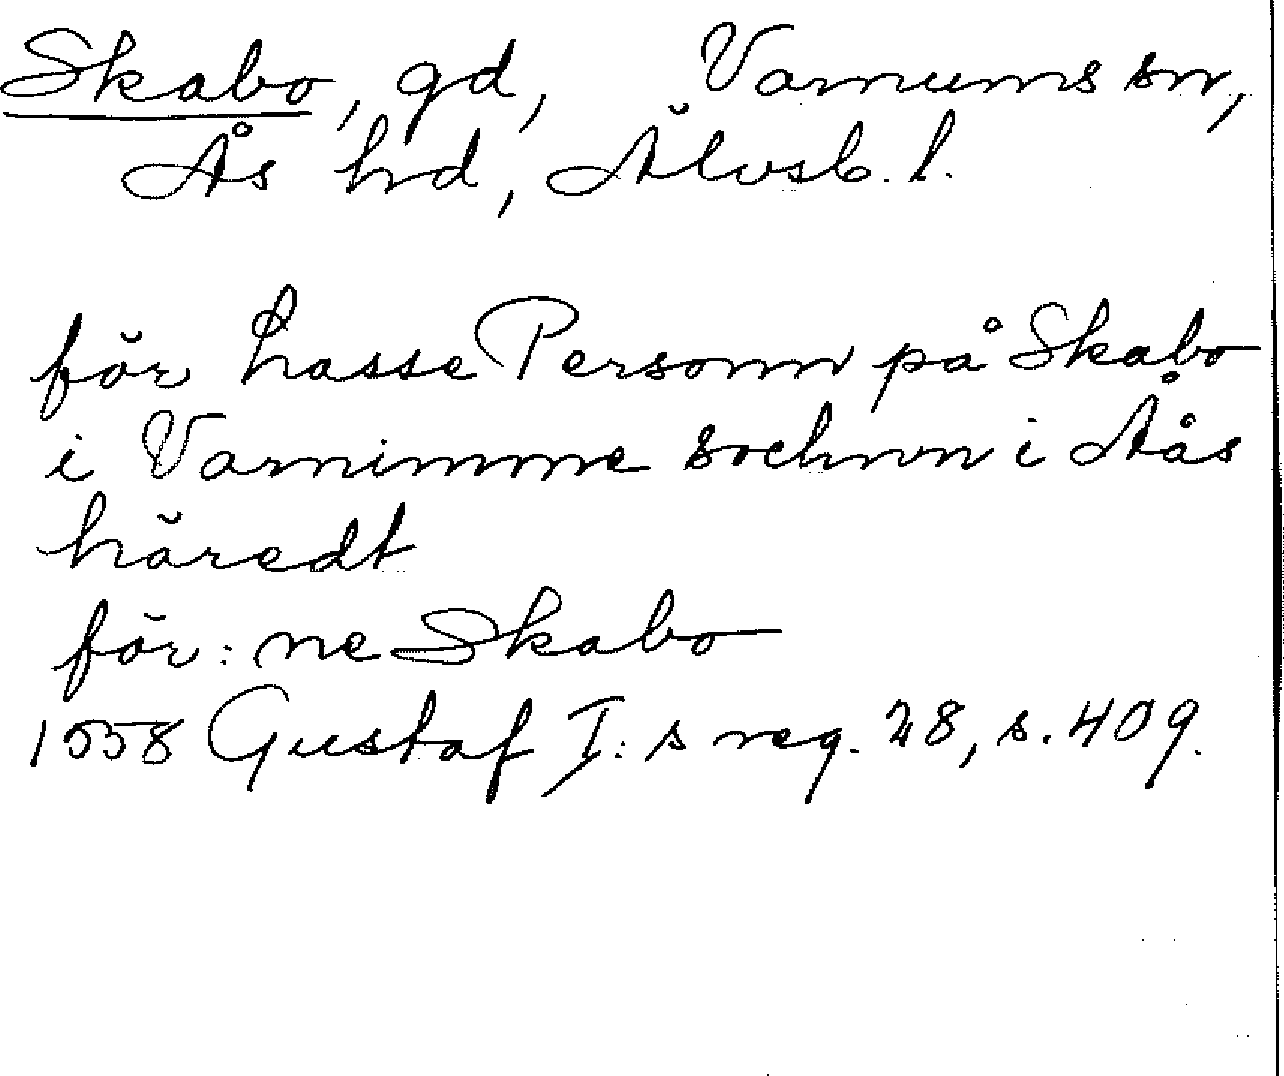 Skabo, gd, Varnums sn,
Ås hd, Älvsb. l.
för Lasse Personn på Skabo
i Varnimme sochnn i Åås
häredt
för: ne Skabo
1558 Gustaf I: s reg. 28, s. 409.